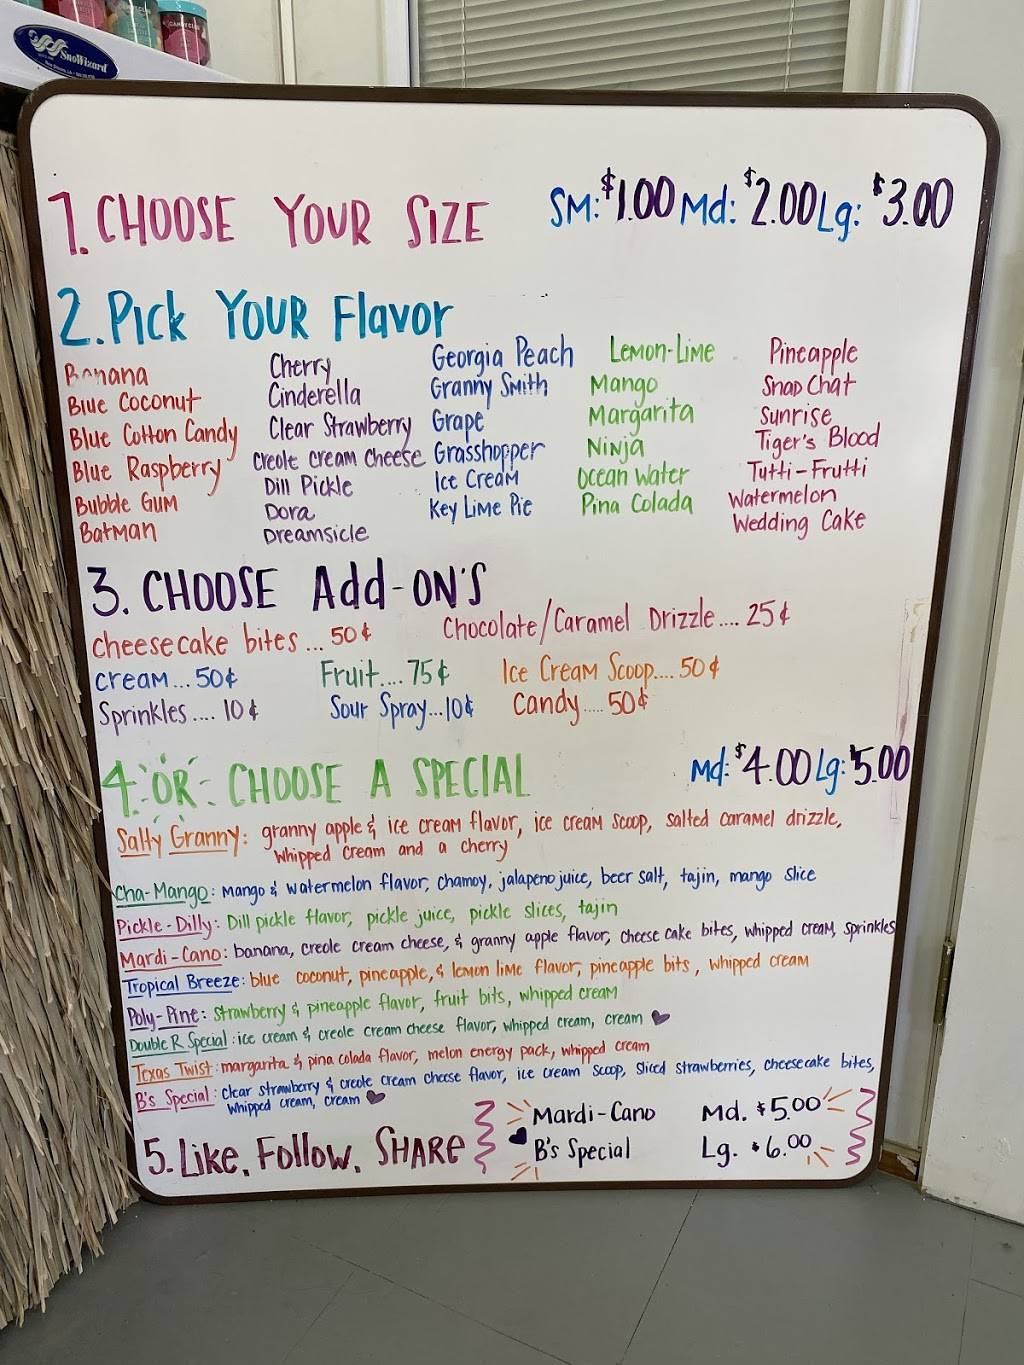 SnoWizard
1. CHOOSE YOUR SIZE SM: $1.00 Md: $2.00 Lg: $3.00
2. Pick YOUR Flavor
Banana
Blue Coconut
Blue Cotton Candy
Blue Raspberry
Bubble Gum
Batman
Cherry
Cinderella
Clear Strawberry
Creole cream cheese
Dill Pickle
Dora
Dreamsicle
Georgia Peach
Granny Smith
Grape
Grasshopper
Ice Cream
Key Lime Pie
Lemon-Lime
Mango
Margarita
Ninja
Ocean Water
Pina Colada
Pineapple
Snap Chat
Sunrise
Tiger's Blood
Tutti-Frutti
Watermelon
Wedding Cake
3. CHOOSE Add-ON'S
cheesecake bites ... 50¢ Chocolate/Caramel Drizzle.... 25¢
cream... 50¢ Fruit.... 75¢ Ice Cream Scoop.... 50¢
Sprinkles.... 10¢ Sour Spray...10¢ Candy..... 50¢
4. OR CHOOSE A SPECIAL Md: $4.00 Lg: $5.00
Salty Granny: granny apple & ice cream flavor, ice cream scoop, salted caramel drizzle,
whipped cream and a cherry
Cha-Mango: mango & watermelon flavor, chamoy, jalapeno juice, beer salt, tajin, mango slice
Pickle-Dilly: Dill pickle flavor, pickle juice, pickle slices, tajin
Mardi-Cano: banana, creole cream cheese, & granny apple flavor, cheese cake bites, whipped cream, sprinkles
Tropical Breeze: blue coconut, pineapple, & lemon lime flavor, pineapple bits, whipped cream
Poly-Pine: strawberry & pineapple flavor, fruit bits, whipped cream
Double R Special: ice cream & creole cream cheese flavor, whipped cream, cream
Texas Twist: margarita & pina colada flavor, melon energy pack, whipped cream
B's Special: clear strawberry & creole cream cheese flavor, ice cream scoop, sliced strawberries, cheesecake bites,
whipped cream, cream
5. Like, Follow, SHARE
Mardi-Cano Md. $5.00
B's Special Lg. $6.00